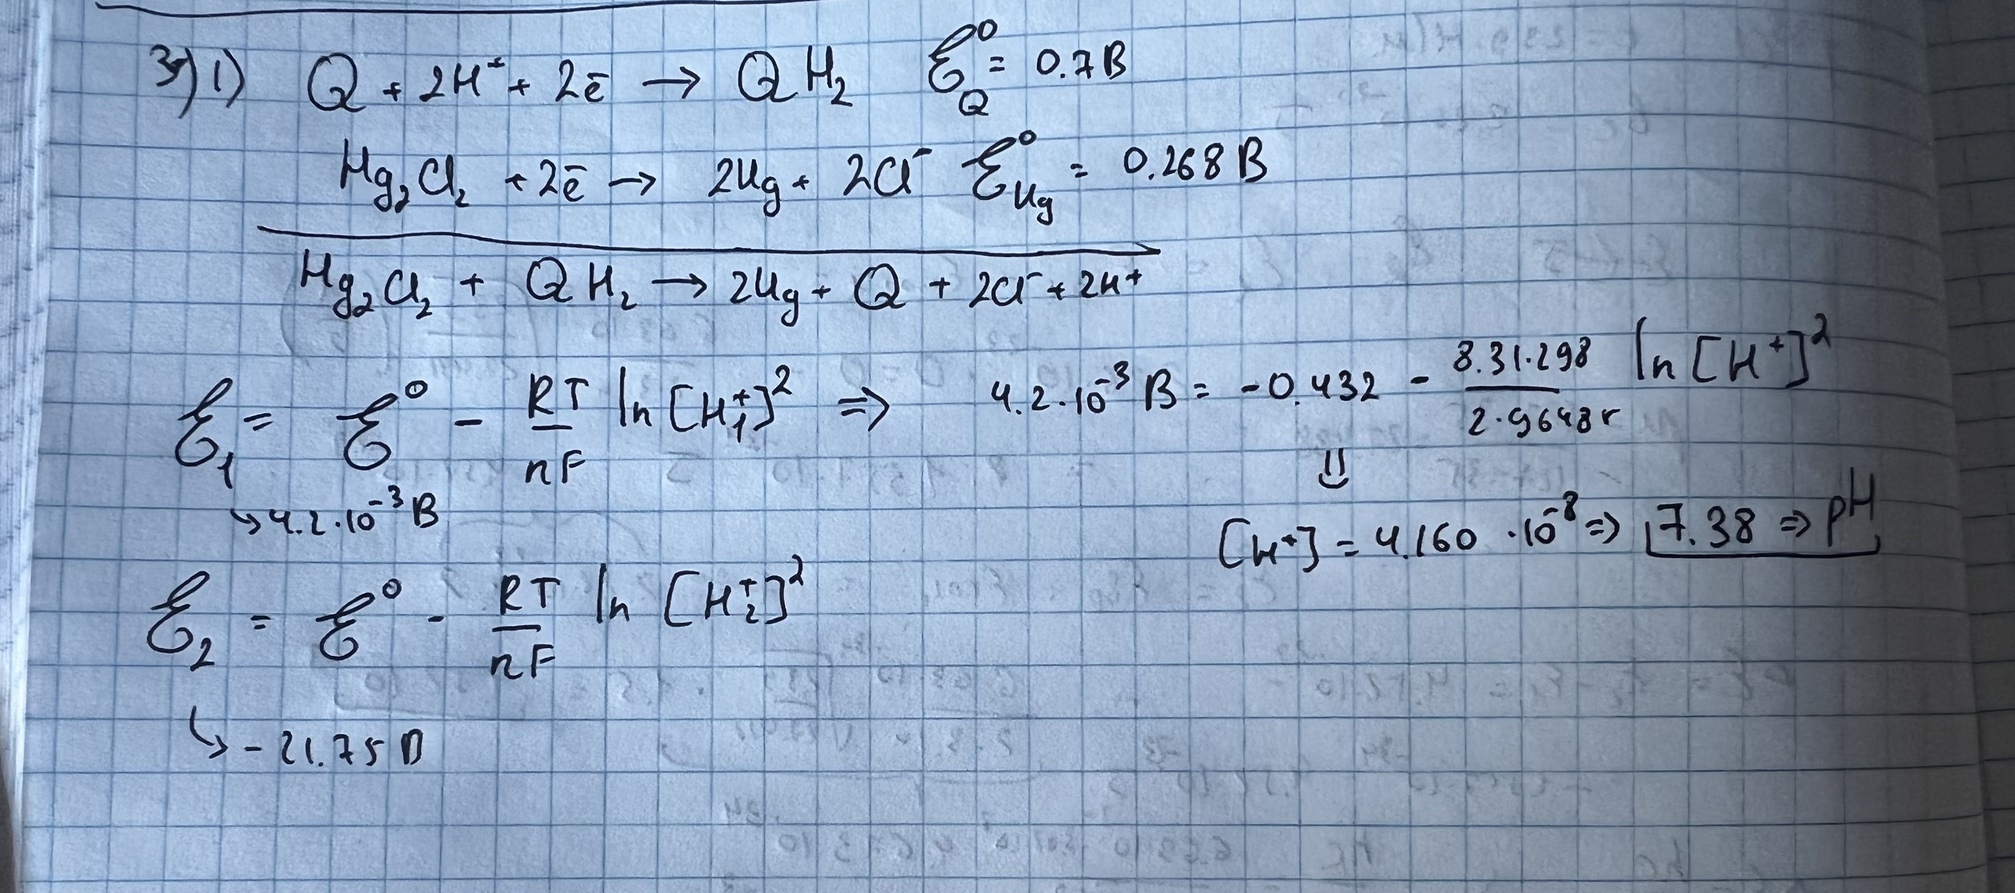 3) 1) Q + 2H⁺ + 2ē → QH₂ ℰ⁰_Q = 0.7 В
Hg₂Cl₂ + 2ē → 2Hg + 2Cl⁻ ℰ⁰_Hg = 0.268 В
Hg₂Cl₂ + QH₂ → 2Hg + Q + 2Cl⁻ + 2H⁺
ℰ₁ = ℰ⁰ - RT/nF ln [H₁⁺]² => 4.2·10⁻³ В = -0.432 - 8.31·298/2·96485 ln [H⁺]²
↳ 4.2·10⁻³ В
⇓
[H⁺] = 4.160 · 10⁻⁸ => 7.38 => pH
ℰ₂ = ℰ⁰ - RT/nF ln [H₂⁺]²
↳ - 21.75 В